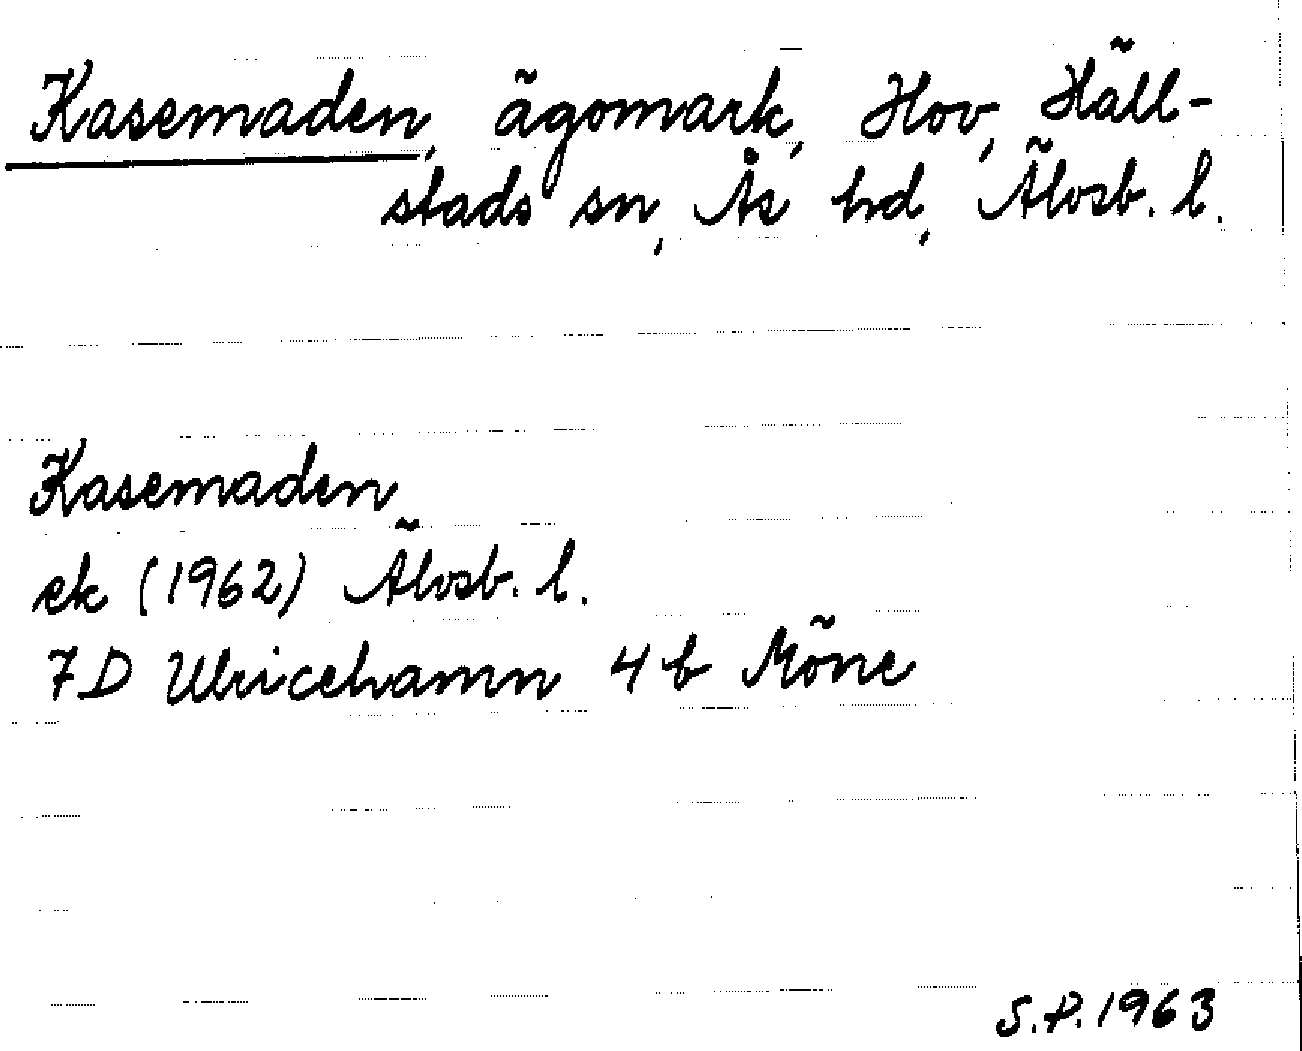 Kasemaden, ägomark, Hov, Häll-
stads sn, Ås hd, Älvsb. l.
Kasemaden
ek (1962) Älvsb. l.
7D Ulricehamn 4 b Möne
S.P. 1963